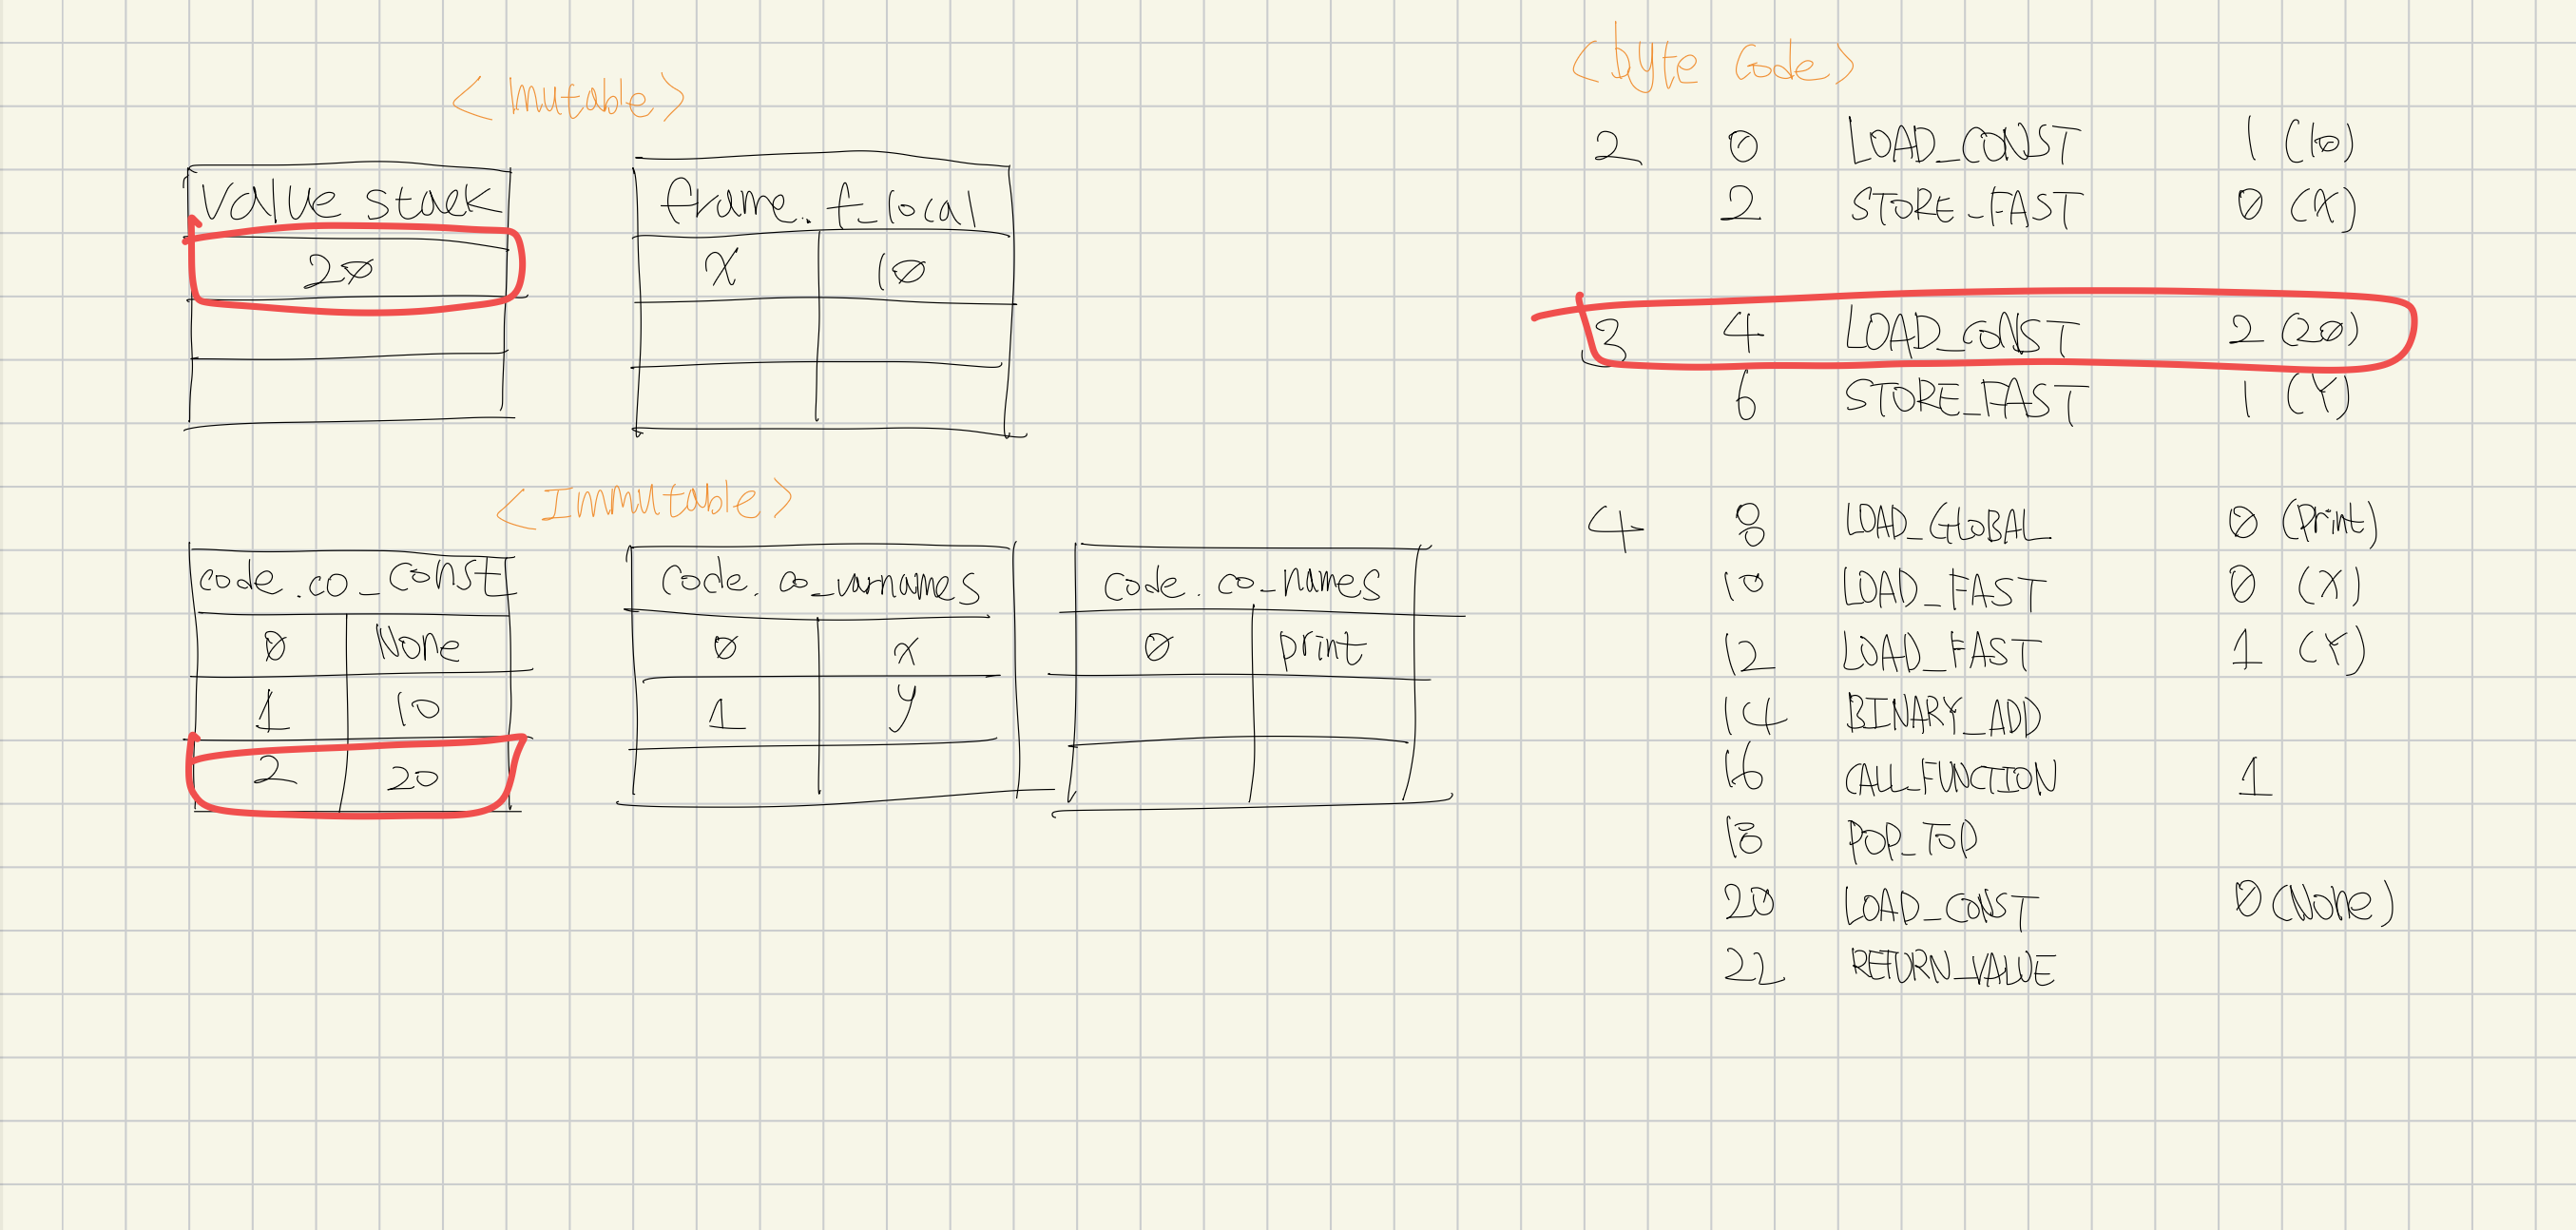 <Mutable>
value stack
20
frame.f_local
x 10
<Immutable>
code.co_const
0 None
1 10
2 20
code.co_varnames
0 x
1 y
code.co_names
0 print
<byte code>
2 0 LOAD_CONST 1 (10)
2 STORE_FAST 0 (X)
3 4 LOAD_CONST 2 (20)
6 STORE_FAST 1 (Y)
4 8 LOAD_GLOBAL 0 (print)
10 LOAD_FAST 0 (X)
12 LOAD_FAST 1 (Y)
14 BINARY_ADD
16 CALL_FUNCTION 1
18 POP_TOP
20 LOAD_CONST 0 (None)
22 RETURN_VALUE